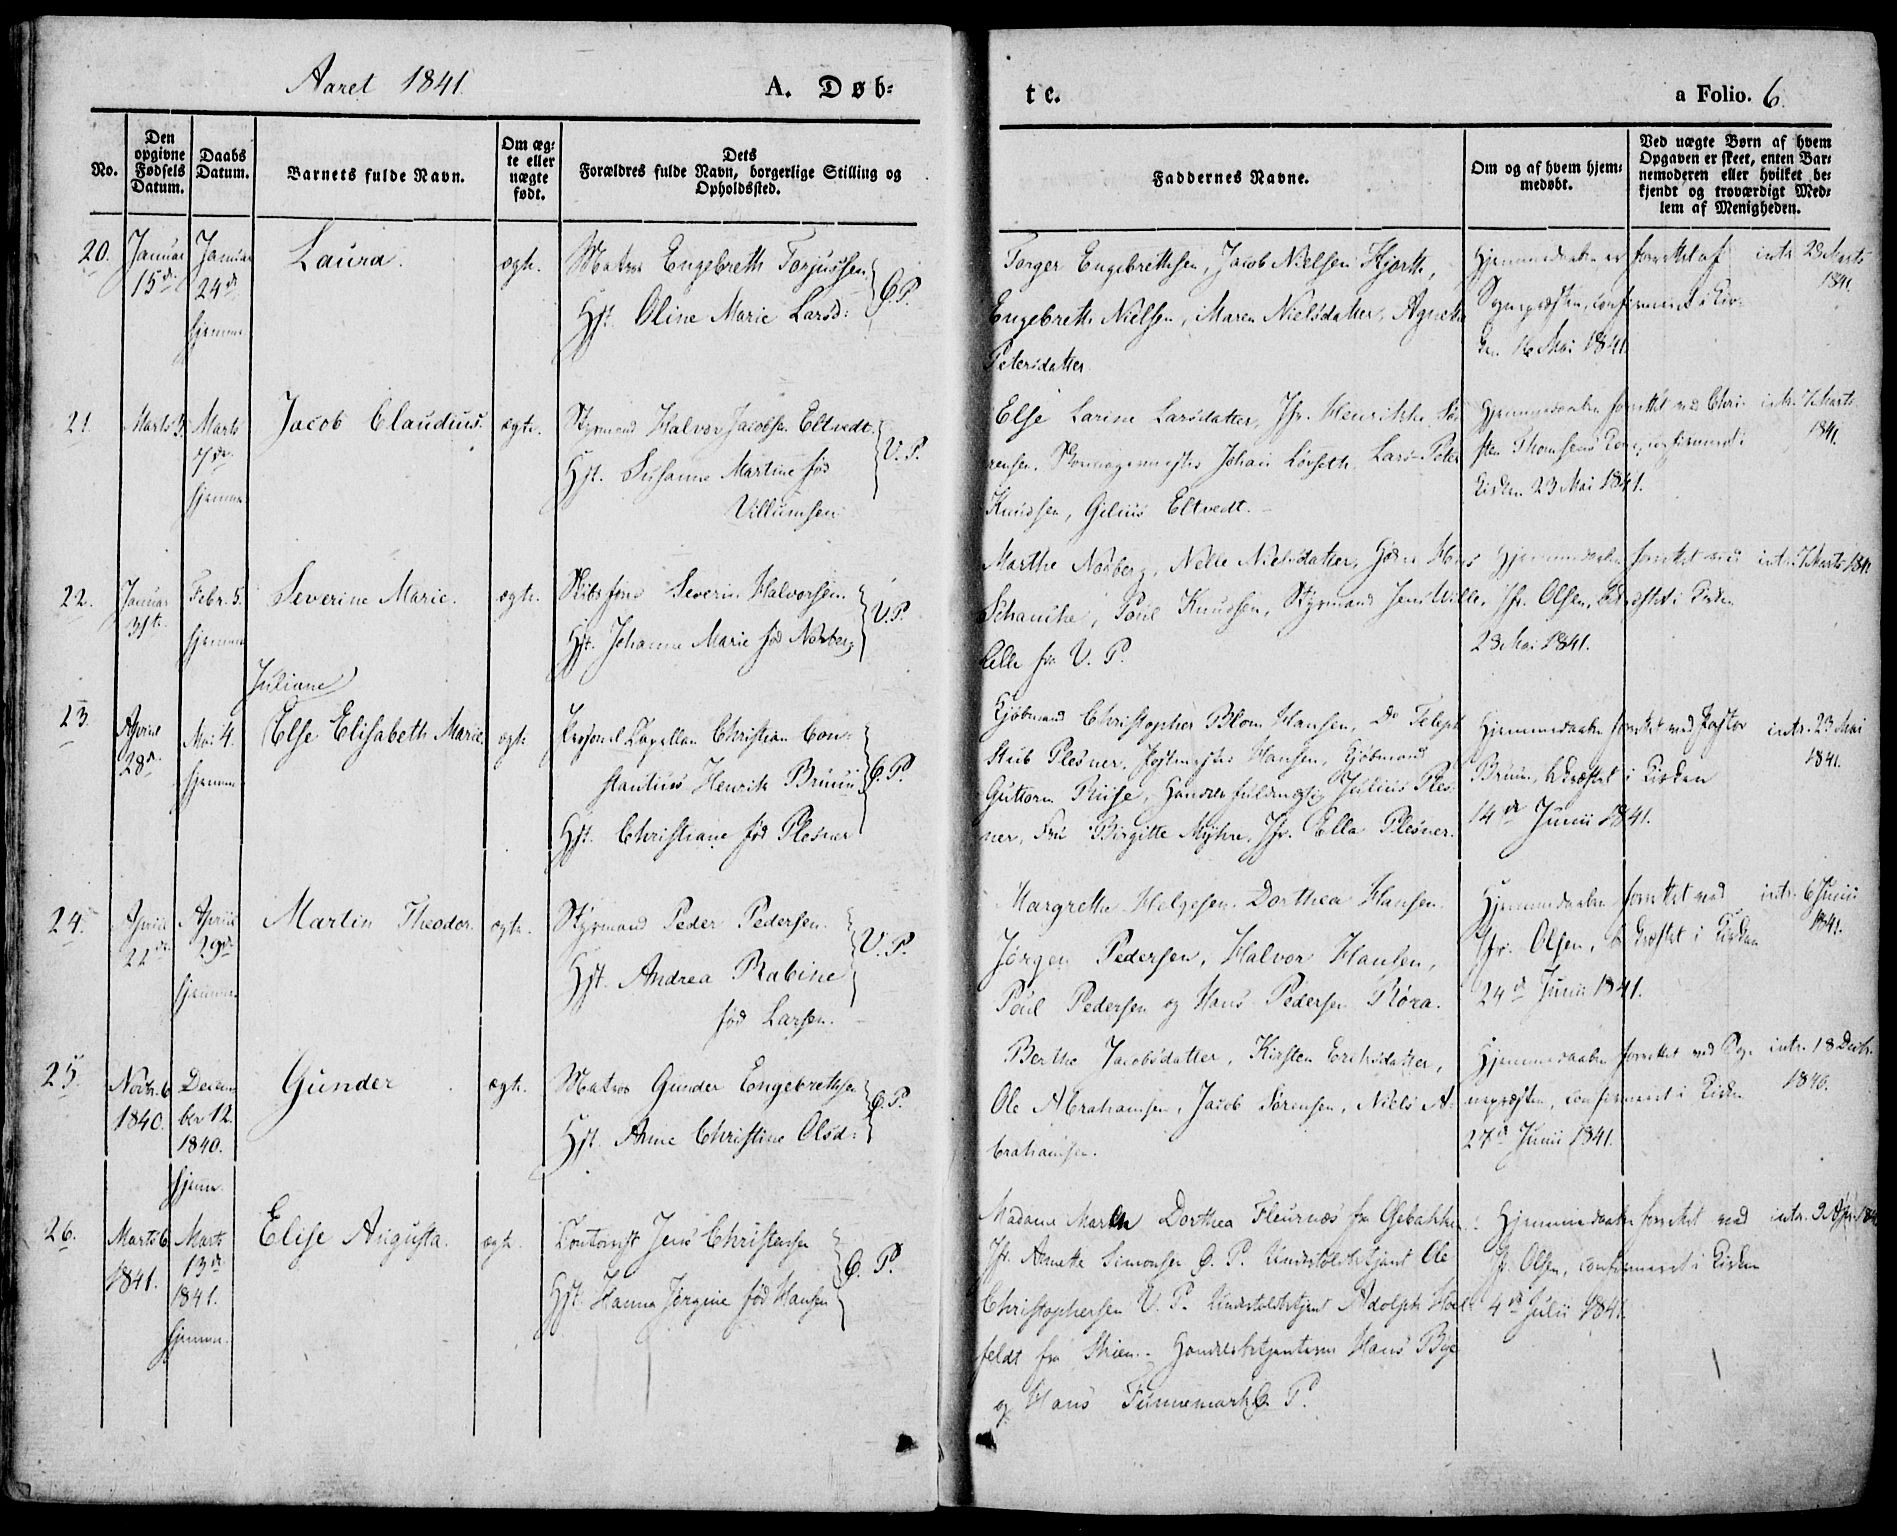 Aaret 1841.
A. Døb-
te.
a Folio. 6.
No.
Den opgivne Fødsels Datum.
Daabs Datum.
Barnets fulde Navn.
Om ægte eller uægte født.
Dets
Forældres fulde Navn, borgerlige Stilling og
Opholdssted.
Faddernes Navne.
Om og af hvem hjem-
medøbt.
Ved uægte Børn af hvem
Opgaven er skeet, enten Bar-
nemoderen eller hvilket be-
kjendt og troværdigt Med-
lem af Menigheden.
20.
Januar
15de
Januar
24de
hjemme
Laura.
ægte.
Matros Engebreth Torjussen
Hst. Oline Marie Larsd:
Ø. P.
Torger Engebrethsen, Jacob Nielsen Hjorth,
Engebreth Nielsen, Maren Nielsdatter, Agnethe
Petersdatter.
Hjemmedaaben er forrettet af
Sognepræsten, confirmeret i Kir-
ken 16 Mai 1841.
intr. 23 Marts
1841.
21.
Marts 3.
Marts
7de
hjemme
Jacob Claudius.
ægte.
Styrmand Halvor Jacobsen Eltvedt.
Hst. Susanne Martine fød
Villumsen
V. P.
Else Larine Larsdatter, Jfr. Henrikke Sø-
rensen. Skomagermester Johan Løvseth. Lars Peter
Knudsen, Gilius Eltvedt.
Hjemmedaaben forrettet ved Chri-
sten Thomsens Kone, confirmeret i
Kirken 23 Mai 1841.
intr. 7 Marts
1841.
22.
Januar
31te
Febr. 5.
hjemme
Severine Marie.
ægte.
Severin Halvorsen
Hst. Johanne Marie fød Norberg
V. P.
Marthe Norberg, Nelle Nielsdatter,
Schanche, Poul Knudsen, Styrmand Jens Wille
fra V. P.
Hjemmedaaben forrettet ved
Jfr. Olsen, bekræftet i Kirken
23 Mai 1841.
intr. 7 Marts 1841
23.
April
28de
Mai 4.
hjemme
Juliane
Else Elisabeth Marie.
ægte
Personel Kapellan Christian Con-
stantius Henrik Bruun
Hst. Christiane fød Plesner
Ø. P.
Kjøbmand Christopher Blom Hansen, Do Teleph
Stub Plesner, Postmester Hansen, Kjøbmand
Guttorm Ruse, Handelsfuldmægtig Julius Ples-
ner, Fru Birgitte Myhre, Jfr. Ella Plesner.
Hjemmedaaben forrettet ved Pastor
Bruun, bekræftet i Kirken
14de Junii 1841.
intr. 23 Mai
1841.
24.
April
22de
April
29de
hjemme
Martin Theodor.
ægte.
Styrmand Peder Pedersen.
Hst. Andrea Rabine
fød Larsen.
V. P.
Margrethe Helgesen. Dorthea Hansen.
Jørgen Pedersen, Halvor Hansen,
Poul Pedersen og Hans Pedersen Røra.
Hjemmedaaben forrettet ved
Jfr. Olsen, bekræftet i Kirken
24de Junii 1841.
intr. 6 Junii
1841.
25.
Novbr. 6
1840.
Decem-
ber 12.
1840.
hjemme.
Gunder
ægte.
Matros Gunder Engebrethsen
Hst. Anne Christine Olsd:
Ø. P.
Berthe Jacobsdatter, Kirsten Eriksdatter,
Ole Abrahamsen, Jacob Sørensen, Niels A-
brahamsen.
Hjemmedaaben forrettet ved Sog-
nepræsten, confirmeret i Kirken
27de Junii 1841.
intr. 18 Decbr.
1840.
26.
Marts 6
1841.
Marts
13de
1841.
hjemme.
Elise Augusta.
ægte.
Contorist Jens Christensen
Hst. Hanna Jørgine fød Hansen
Ø. P.
Madame Maren Dorthea Fleurnæs fra Osebakken.
Jfr. Annette Simonsen Ø. P. Undertoldbetjent Ole
Christophersen V. P. Undertoldbetjent Adolph Hoel-
feldt fra Skien. Handelsbetjenterne Hans Bye
og Hans Tinnemark Ø. P.
Hjemmedaaben forrettet ved
Jfr. Olsen, confirmeret i Kirken
4de Julii 1841.
intr. 9 Apr. 1841